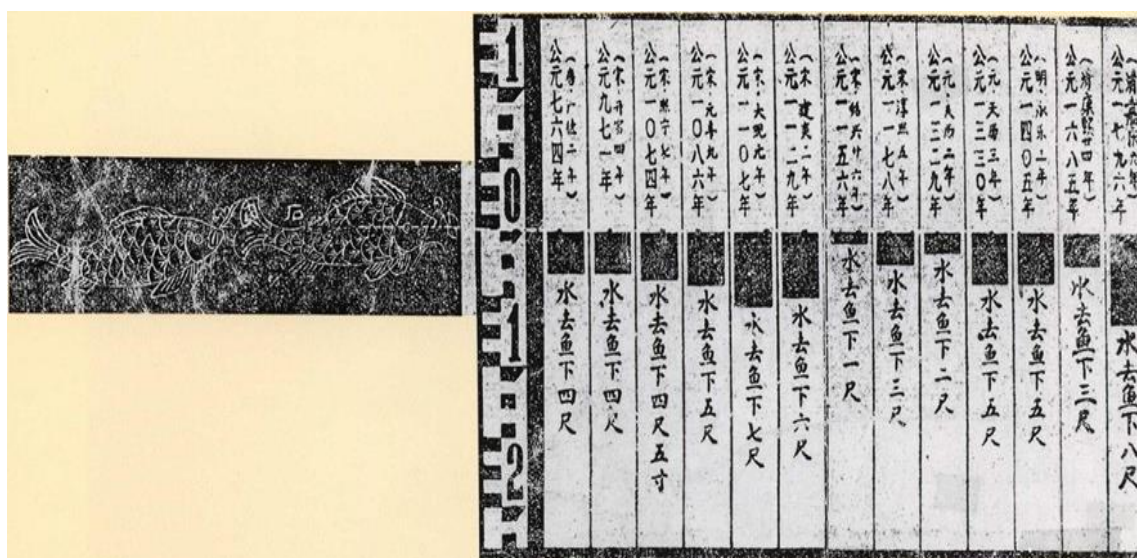 石
1
0
1
2
(唐·广德二年)
公元七六四年
水去鱼下四尺
(宋·开宝四年)
公元九七一年
水去鱼下四尺
(宋·熙宁七年)
公元一〇七四年
水去鱼下四尺五寸
(宋·元丰九年)
公元一〇八六年
水去鱼下五尺
(宋·大观元年)
公元一一〇七年
水去鱼下七尺
(宋·建炎二年)
公元一一二九年
水去鱼下六尺
(宋·绍兴廿六年)
公元一一五六年
水去鱼下一尺
(宋·淳熙五年)
公元一一七八年
水去鱼下三尺
(元·天历二年)
公元一三二九年
水去鱼下二尺
(元·天历三年)
公元一三三〇年
水去鱼下五尺
(明·永乐二年)
公元一四〇五年
水去鱼下五尺
(清康熙廿四年)
公元一六八五年
水去鱼下三尺
公元一七九六年
水去鱼下八尺